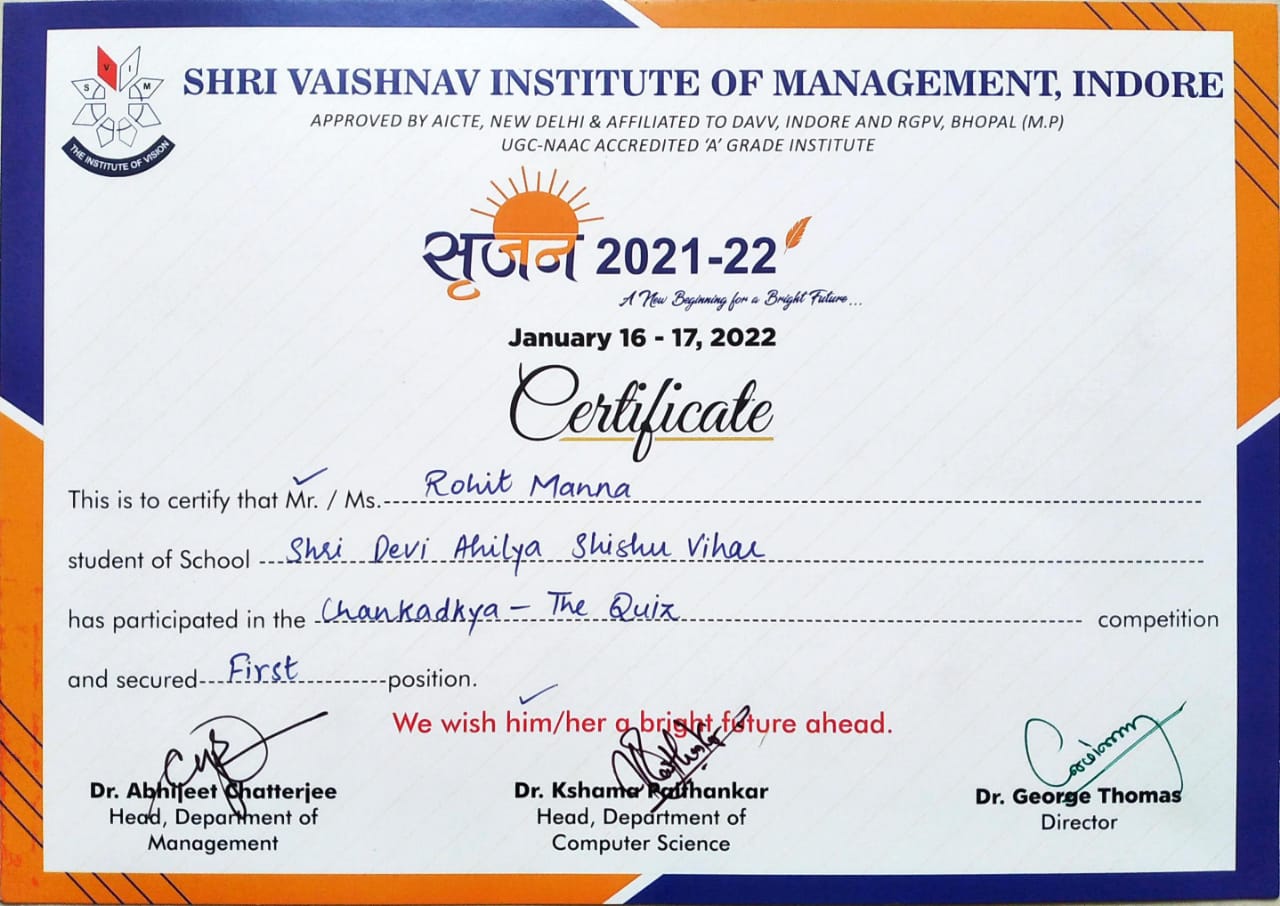 SVIM
THE INSTITUTE OF VISION
SHRI VAISHNAV INSTITUTE OF MANAGEMENT, INDORE
APPROVED BY AICTE, NEW DELHI & AFFILIATED TO DAVV, INDORE AND RGPV, BHOPAL (M.P)
UGC-NAAC ACCREDITED ‘A’ GRADE INSTITUTE
सृजन 2021-22
A New Beginning for a Bright Future...
January 16 - 17, 2022
Certificate
This is to certify that Mr. / Ms. Rohit Manna
student of School Shri Devi Ahilya Shishu Vihar
has participated in the Chankadkya - The Quiz competition
and secured First position.
We wish him/her a bright future ahead.
Dr. Abhijeet Chatterjee Dr. Kshama Paithankar Dr. George Thomas
Head, Department of Head, Department of Director
Management Computer Science